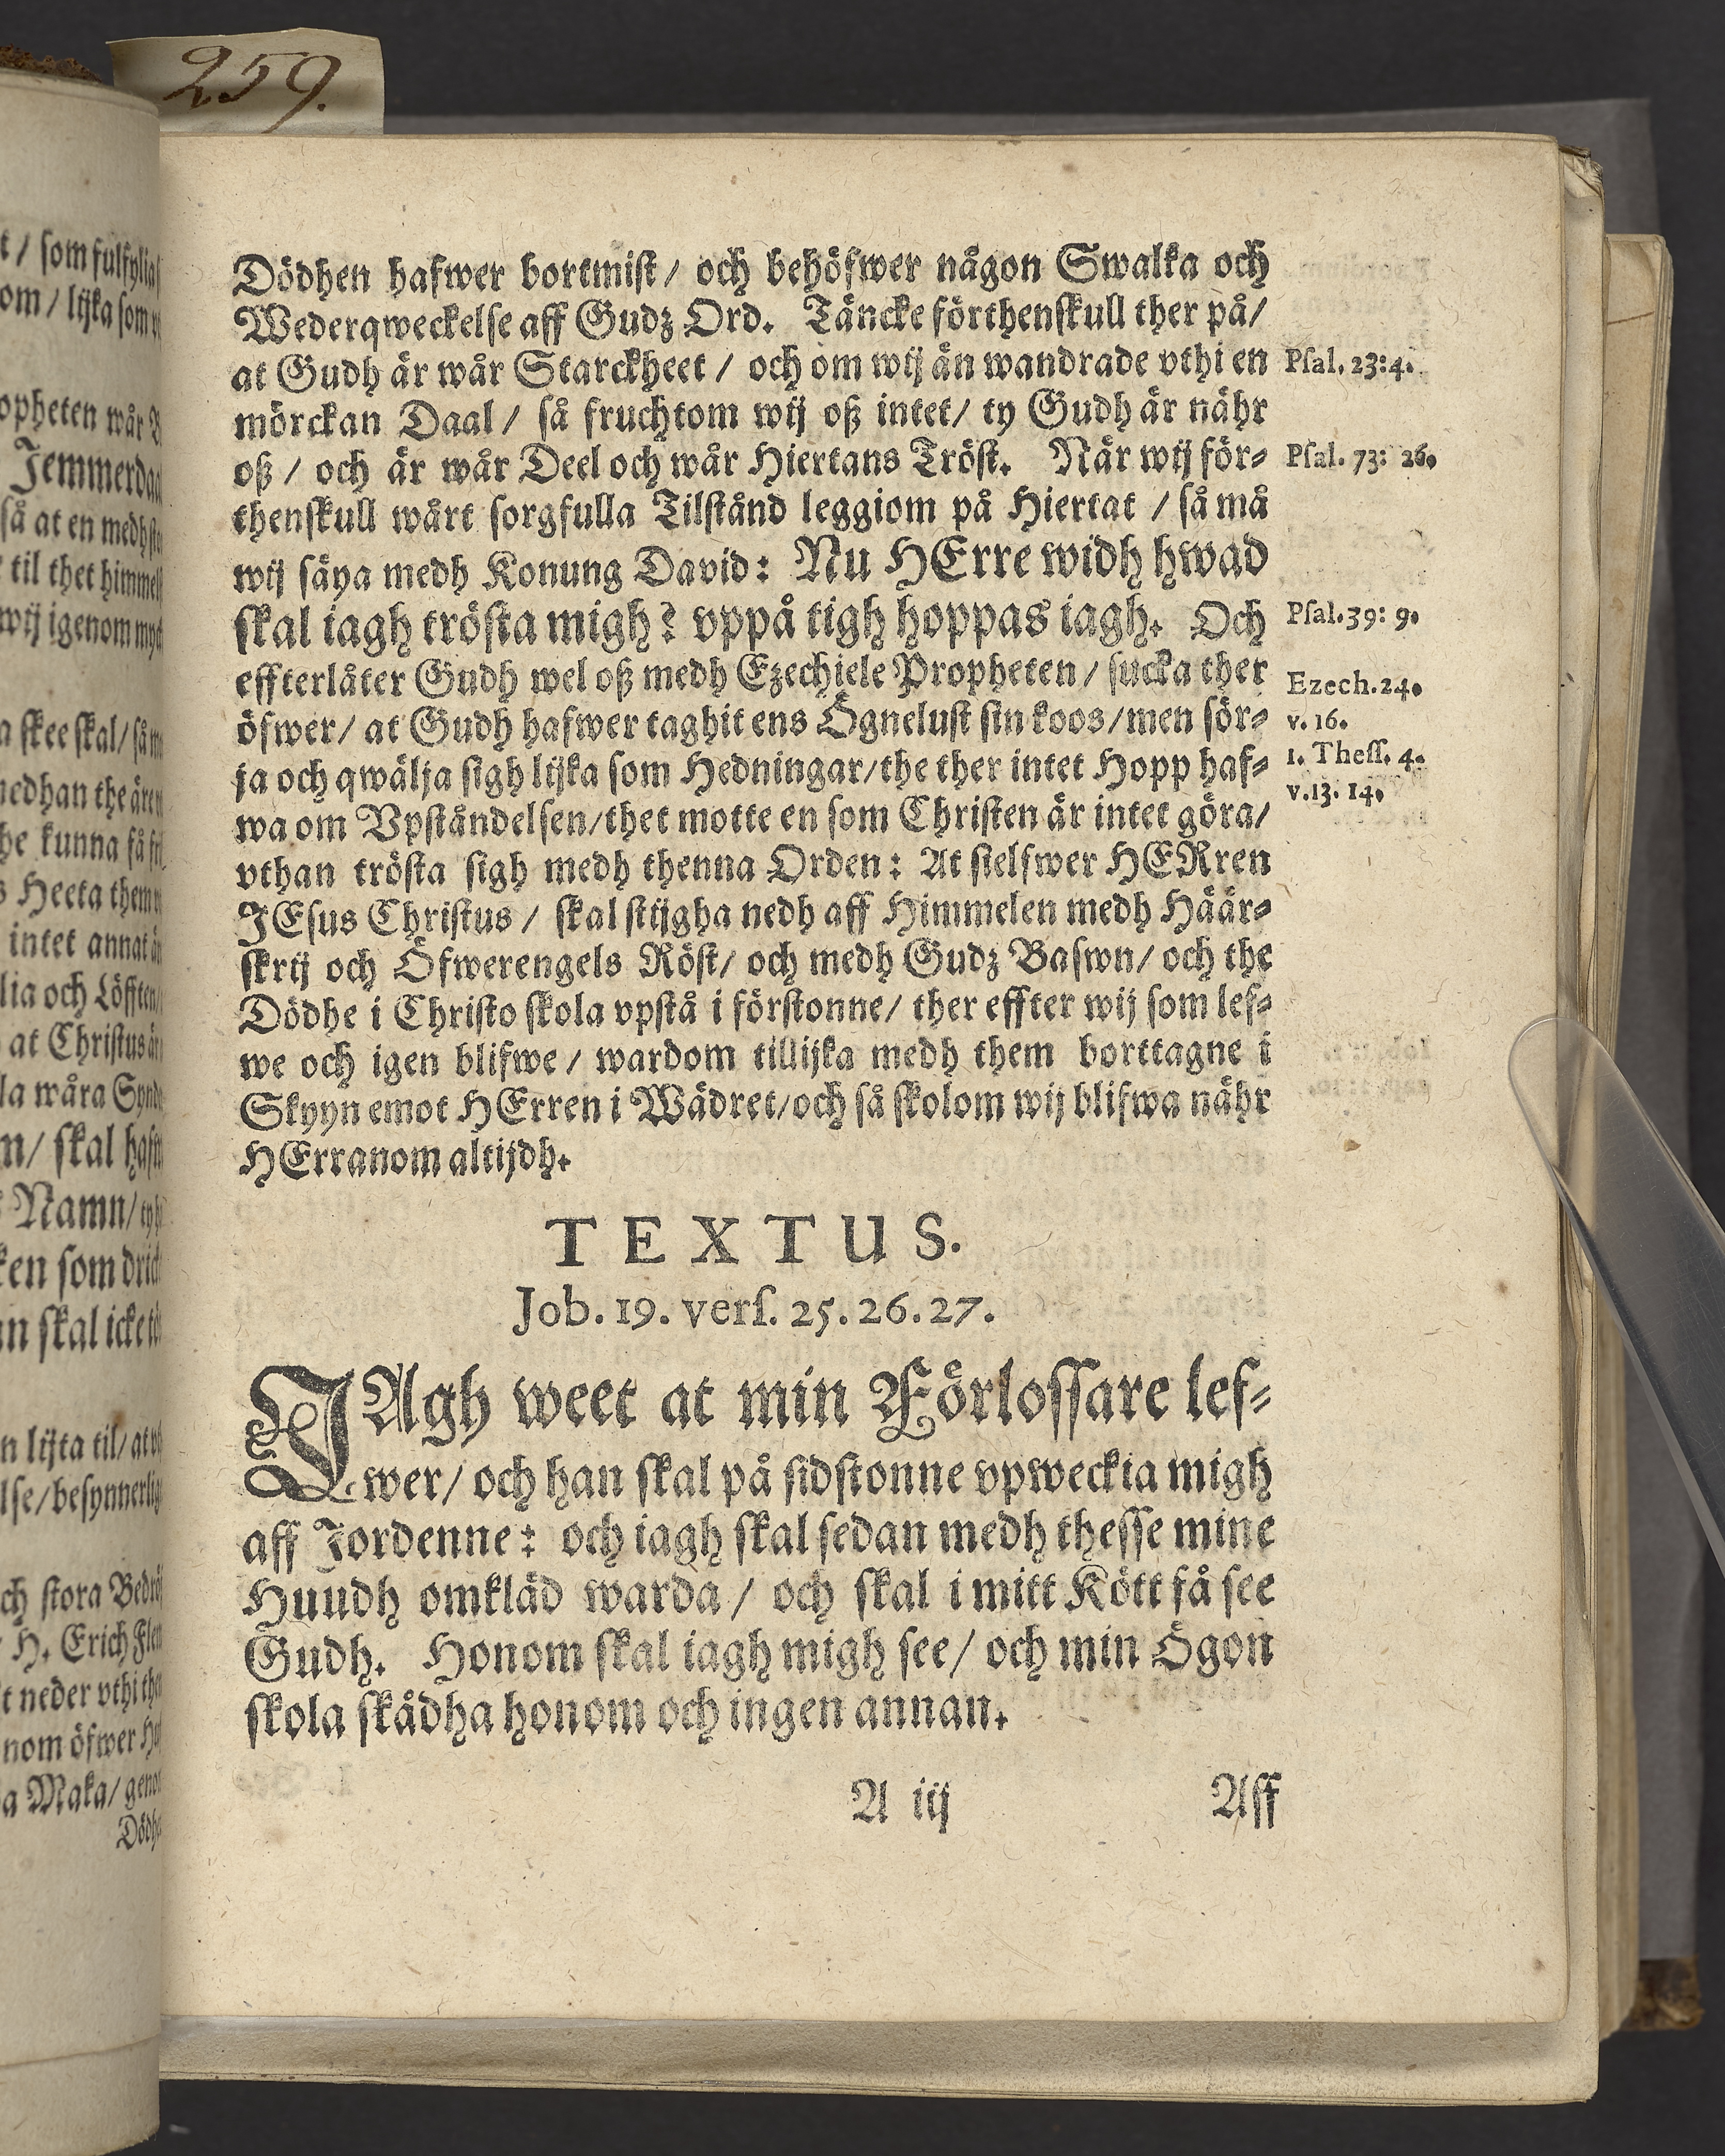 259.
Dödhen hafwer bortmist / och behöfwer någon Swalka och
Wederqweckelse aff Gudz Ord. Täncke förthenskull ther på/
at Gudh är wår Starckheet / och om wij än wandrade vthi en
Psal. 23:4.
mörckan Daal / så fruchtom wij oß intet/ ty Gudh är nähr
oß / och är wår Deel och wår Hiertans Tröst. När wij för-
Psal. 73: 26.
thenskull wårt sorgfulla Tilstånd leggiom på Hiertat / så må
wij säya medh Konung David: Nu HErre widh hwad
skal iagh trösta migh? vppå tigh hoppas iagh. Och
Psal. 39: 9.
effterlåter Gudh wel oß medh Ezechiele Propheten / sucka ther
Ezech. 24.
öfwer/ at Gudh hafwer taghit ens Ögnelust sin koos/ men sör-
v. 16.
ja och qwälja sigh lijka som Hedningar/ the ther intet Hopp haf-
1. Thess. 4.
wa om Vpståndelsen/ thet motte en som Christen är intet göra/
v. 13. 14.
vthan trösta sigh medh thenna Orden: At sielfwer HERren
JEsus Christus / skal stijgha nedh aff Himmelen medh Häär-
skrij och Öfwerengels Röst/ och medh Gudz Baswn/ och the
Dödhe i Christo skola vpstå i förstonne/ ther effter wij som lef-
we och igen blifwe / wardom tillijka medh them borttagne i
Skyyn emot HErren i Wädret/ och så skolom wij blifwa nähr
HErranom altijdh.
TEXTUS.
Job. 19. vers. 25. 26. 27.
JAgh weet at min Förlossare lef-
wer/ och han skal på sidstonne vpweckia migh
aff Jordenne: och iagh skal sedan medh thesse mine
Huudh omkläd warda / och skal i mitt Kött få see
Gudh. Honom skal iagh migh see/ och min Ögon
skola skådha honom och ingen annan.
A iij
Aff